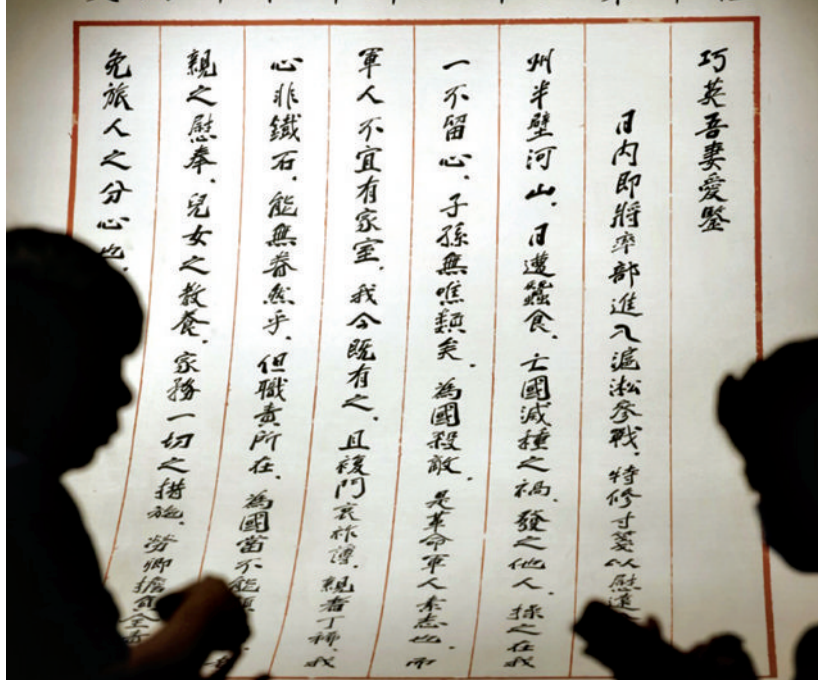 巧英吾妻愛鑒
日內即將率部進入滬淞參戰、特修寸箋以慰遠
州半壁河山、日遭蠶食、亡國滅種之禍、發之他人、操之在我
一不留心、子孫無噍類矣、為國殺敵、是革命軍人素志也、而
軍人不宜有家室、我今既有之、且複門衰祚薄、親者丁稀、我
心非鐵石、能無眷然乎、但職責所在、為國當不能
親之慰奉、兒女之教養、家務一切之措施、勞卿擔負全責
免旅人之分心也、